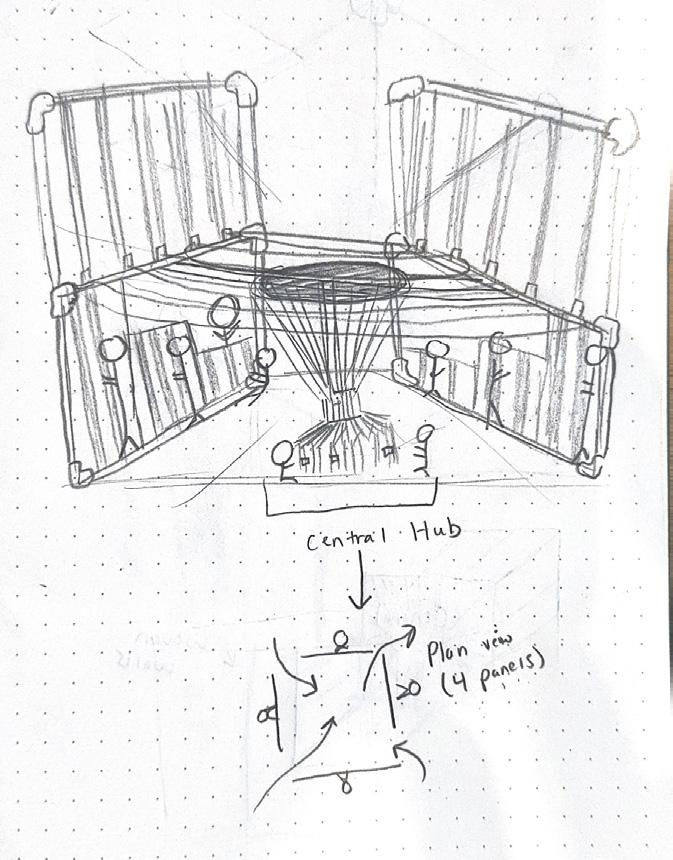 Central Hub
Plain view
(4 panels)